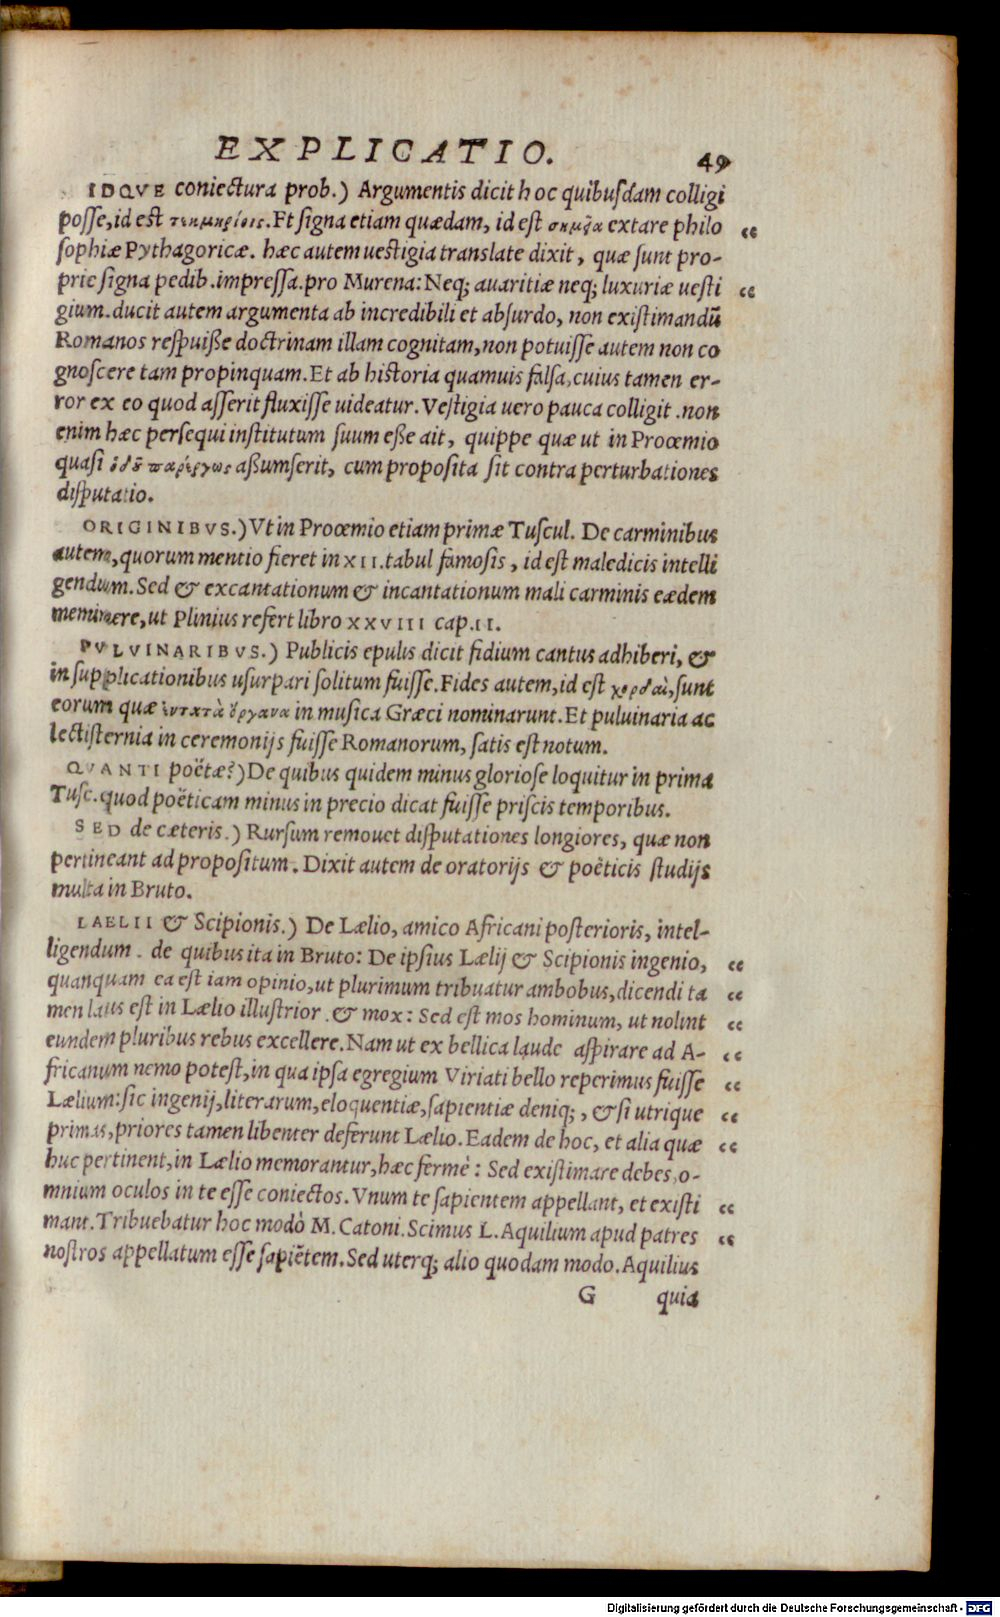 EXPLICATIO. 49
IDQVE coniectura prob.) Argumentis dicit hoc quibusdam colligi
posse, id est τεκμηρίοις. Et signa etiam quædam, id est σημεῖα extare philo
sophiæ Pythagoricæ. hæc autem uestigia translate dixit, quæ sunt pro-
prie signa pedib. impressa. pro Murena: Neq; auaritiæ neq; luxuriæ uesti
gium. ducit autem argumenta ab incredibili et absurdo, non existimandũ
Romanos respuisse doctrinam illam cognitam, non potuisse autem non co
gnoscere tam propinquam. Et ab historia quamuis falsa, cuius tamen er-
ror ex eo quod asserit fluxisse uideatur. Vestigia uero pauca colligit. non
enim hæc persequi institutum suum esse ait, quippe quæ ut in Proœmio
quasi ὁδοῦ παρέργως assumserit, cum proposita sit contra perturbationes
disputatio.
ORIGINIBVS.) Vt in Proœmio etiam primæ Tuscul. De carminibus
autem, quorum mentio fieret in XII. tabul famosis, id est maledicis intelli
gendum. Sed & excantationum & incantationum mali carminis eædem
meminere, ut Plinius refert libro XXVIII cap. II.
PVLVINARIBVS.) Publicis epulis dicit fidium cantus adhiberi, &
in supplicationibus usurpari solitum fuisse. Fides autem, id est χορδαὶ, sunt
eorum quæ ἐντατὰ ὄργανα in musica Græci nominarunt. Et puluinaria ac
lectisternia in ceremonijs fuisse Romanorum, satis est notum.
QVANTI poëtæ?) De quibus quidem minus gloriose loquitur in prima
Tusc. quod poëticam minus in precio dicat fuisse priscis temporibus.
SED de cæteris.) Rursum remouet disputationes longiores, quæ non
pertineant ad propositum. Dixit autem de oratorijs & poëticis studijs
multa in Bruto.
LAELII & Scipionis.) De Lælio, amico Africani posterioris, intel-
ligendum. de quibus ita in Bruto: De ipsius Lælij & Scipionis ingenio,
quanquam ea est iam opinio, ut plurimum tribuatur ambobus, dicendi ta
men laus est in Lælio illustrior. & mox: Sed est mos hominum, ut nolint
eundem pluribus rebus excellere. Nam ut ex bellica laude aspirare ad A-
fricanum nemo potest, in qua ipsa egregium Viriati bello reperimus fuisse
Lælium: sic ingenij, literarum, eloquentiæ, sapientiæ deniq;, & si utrique
primas, priores tamen libenter deferunt Lælio. Eadem de hoc, et alia quæ
huc pertinent, in Lælio memorantur, hæc fermè: Sed existimare debes, o-
mnium oculos in te esse coniectos. Vnum te sapientem appellant, et existi
mant. Tribuebatur hoc modò M. Catoni. Scimus L. Aquilium apud patres
nostros appellatum esse sapiẽtem. Sed uterq; alio quodam modo. Aquilius
G quia
Digitalisierung gefördert durch die Deutsche Forschungsgemeinschaft - DFG